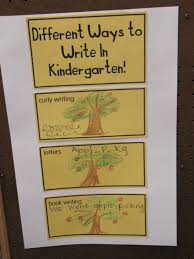 Different Ways to
Write In
Kindergarten!
curly writing
letters
Appl p kg
book writing
We went apple picking